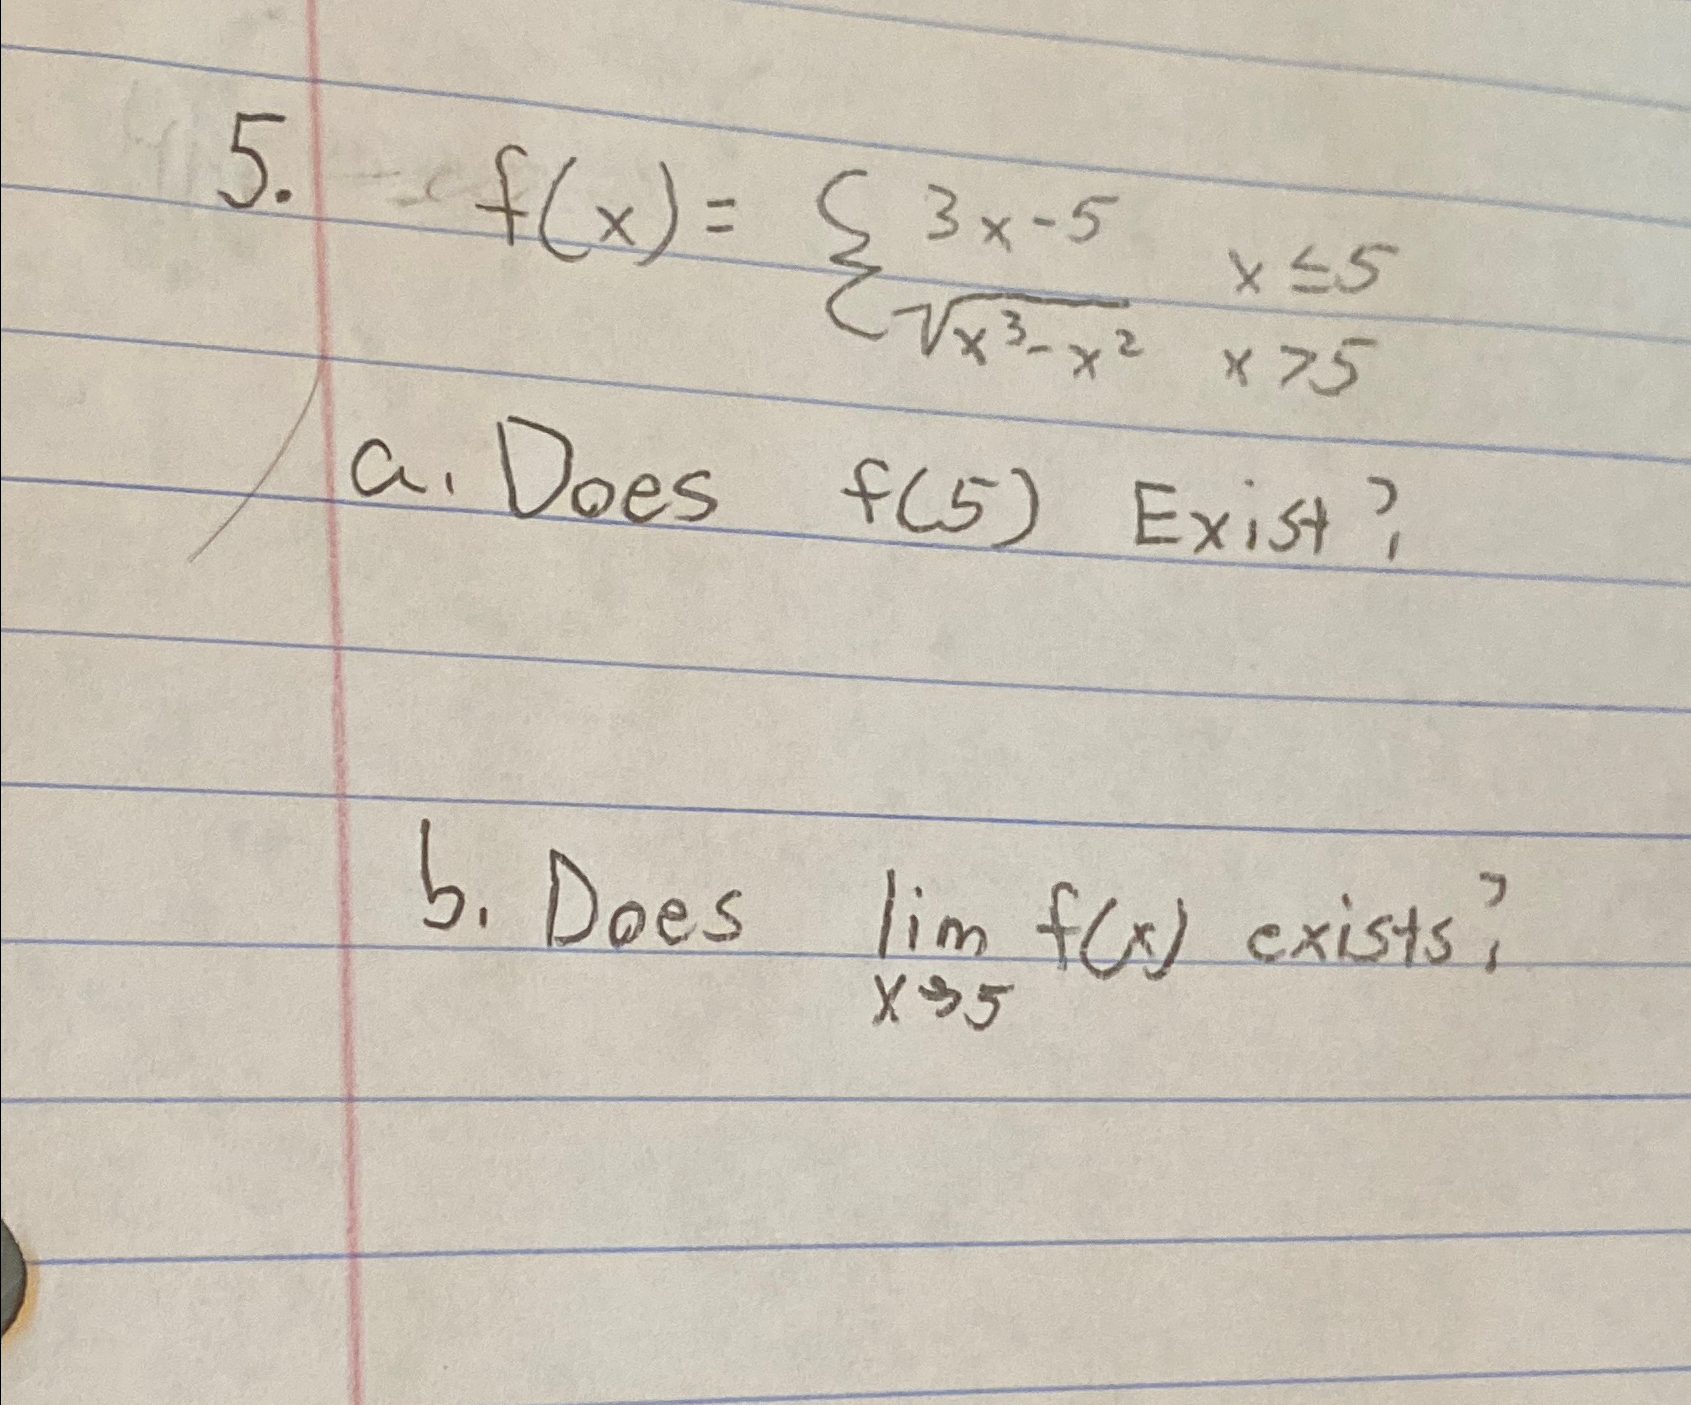 5. f(x) = { 3x-5 x ≤ 5
√x³-x² x > 5
a. Does f(5) Exist?
b. Does lim f(x) exists?
x→5